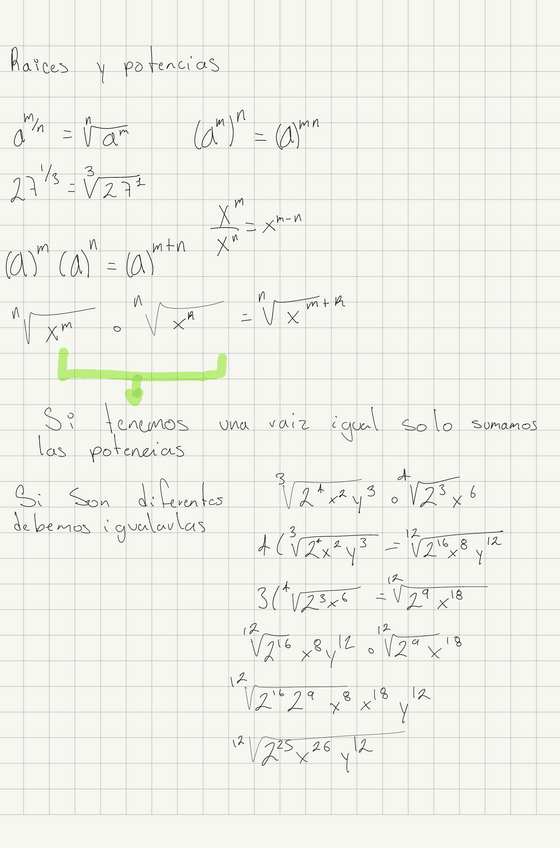 Raices y potencias
a^{m/n} = ⁿ√(a^m)
(a^m)^n = (a)^{mn}
27^{1/3} = ³√(27^1)
x^m / x^n = x^{m-n}
(a)^m (a)^n = (a)^{m+n}
ⁿ√(x^m) · ⁿ√(x^k) = ⁿ√(x^{m+k})
Si tenemos una raiz igual solo sumamos
las potencias
Si son diferentes
debemos igualarlas
³√(2^4 x^2 y^3) · ⁴√(2^3 x^6)
4(³√(2^4 x^2 y^3) = ¹²√(2^{16} x^8 y^{12})
3(⁴√(2^3 x^6) = ¹²√(2^9 x^{18})
¹²√(2^{16} x^8 y^{12}) · ¹²√(2^9 x^{18})
¹²√(2^{16} 2^9 x^8 x^{18} y^{12})
¹²√(2^{25} x^{26} y^{12})